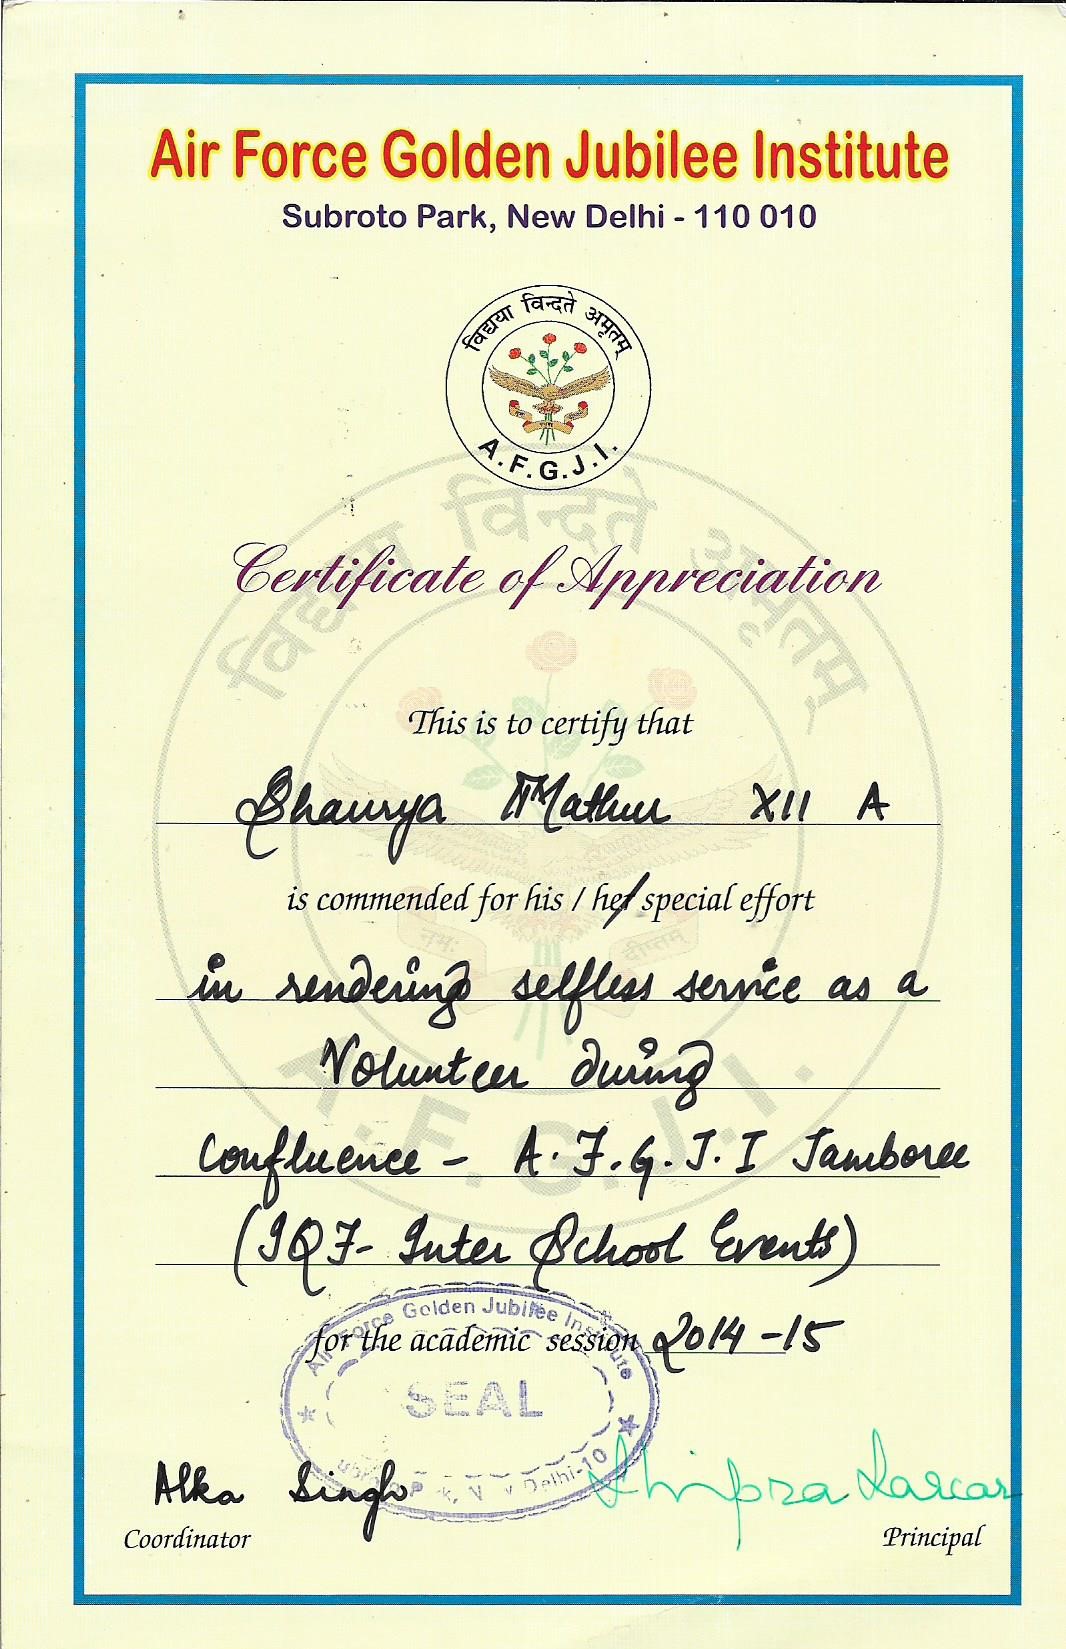 Air Force Golden Jubilee Institute
Subroto Park, New Delhi - 110 010
विद्यया विन्दते अमृतम्
A.F.G.J.I.
Certificate of Appreciation
This is to certify that
Shaurya Mathur XII A
is commended for his / her special effort
in rendering selfless service as a
Volunteer during
Confluence - A.F.G.J.I Jamboree
(IQF- Inter School Events)
for the academic session 2014-15
Air Force Golden Jubilee Institute
SEAL
Subroto Park, New Delhi-10
Alka Singh
Shipra Sarcar
Coordinator
Principal